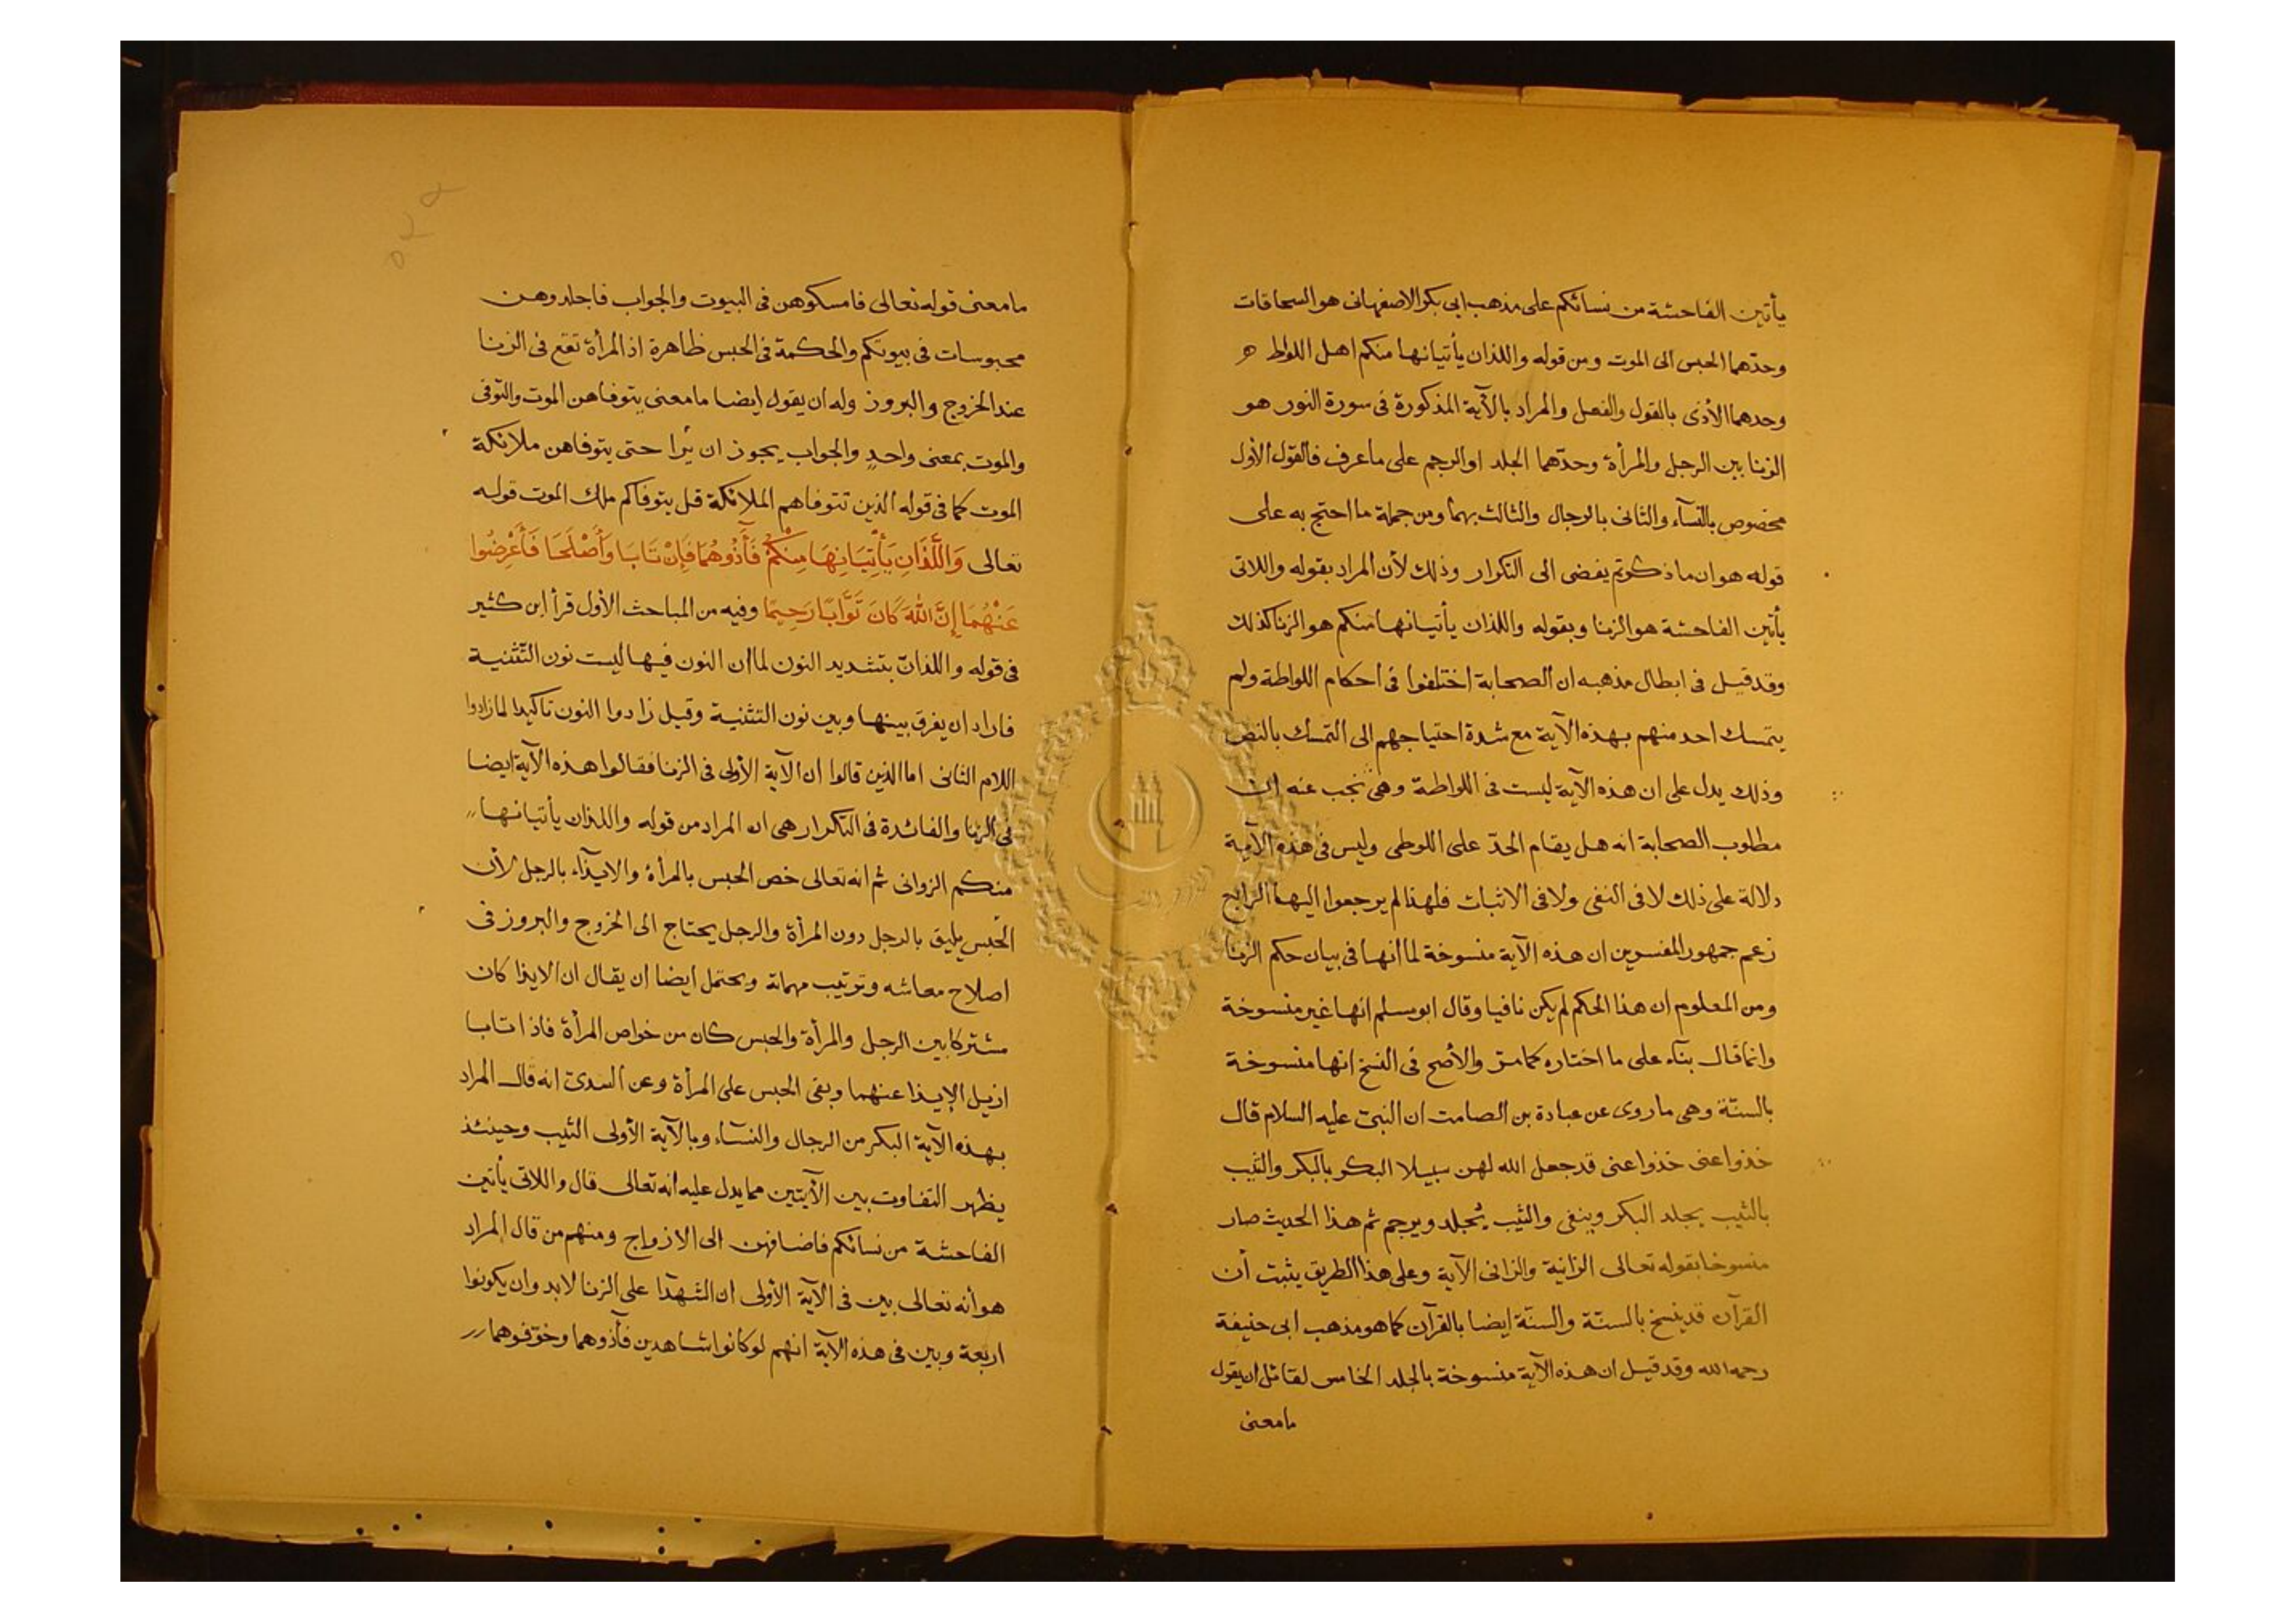 يأتين الفاحشة من نسائكم على مذهب ابى بكر الاصفهانى هو السحاقات
وحدّهما الحبس الى الموت ومن قوله واللذان يأتيانها منكم اهل اللواط
وحدهما الأذى بالقول والفعل والمراد بالآية المذكورة فى سورة النور هو
الزنا بين الرجل والمرأة وحدّهما الجلد او الرجم على ما عرف فالقول الأول
مخصوص بالنسآء والثانى بالرجال والثالث بهما ومن جملة ما احتج به على
قوله هو ان ما ذكرتم يفضى الى التكرار وذلك لأن المراد بقوله واللاتى
يأتين الفاحشة هو الزنا وبقوله واللذان يأتيانها منكم هو الزنا كذلك
وقد قيل فى ابطال مذهبه ان الصحابة اختلفوا فى احكام اللواطة ولم
يتمسك احد منهم بهذه الآية مع شدة احتياجهم الى التمسك بالنص
وذلك يدل على ان هذه الآية ليست فى اللواطة وهى نجب عنه ان
مطلوب الصحابة انه هل يقام الحدّ على اللوطى وليس فى هذه الآية
دلالة على ذلك لا فى النفى ولا فى الاثبات فلهذا لم يرجعوا اليها الرابع
زعم جمهور المفسرين ان هذه الآية منسوخة لما انها فى بيان حكم الزنا
ومن المعلوم ان هذا الحكم لم يكن نافيا وقال ابو مسلم انها غير منسوخة
وانما قال بنآء على ما اختاره كما مرّ والأصح فى النسخ انها منسوخة
بالسنّة وهى ما روى عن عبادة بن الصامت ان النبىّ عليه السلام قال
خذوا عنى خذوا عنى قد جعل الله لهن سبيلا البكر بالبكر والثيب
بالثيب يجلد البكر وينفى والثيب يُجلد ويرجم ثم هذا الحديث صار
منسوخا بقوله تعالى الزانية والزانى الآية وعلى هذا الطريق يثبت أن
القرآن قد ينسخ بالسنّة والسنّة ايضا بالقرآن كما هو مذهب ابى حنيفة
رحمه الله وقد قيل ان هذه الآية منسوخة بالجلد الخامس لقائل ان يقول
ما معنى
ما معنى قوله تعالى فامسكوهن فى البيوت والجواب فاجلدوهن
محبوسات فى بيوتكم والحكمة فى الحبس ظاهرة اذ المرأة تقع فى الزنا
عند الخروج والبروز وله ان يقول ايضا ما معنى يتوفاهن الموت والتوفى
والموت بمعنى واحدٍ والجواب يجوز ان يُرا حتى يتوفاهن ملائكة
الموت كما فى قوله الذين تتوفاهم الملائكة قل يتوفاكم ملك الموت قوله
تعالى وَاللَّذَانِ يَأْتِيَانِهَا مِنْكُمْ فَأَذُوهُمَا فَإِنْ تَابَا وَأَصْلَحَا فَأَعْرِضُوا
عَنْهُمَا إِنَّ اللّٰهَ كَانَ تَوَّابًا رَحِيمًا وفيه من المباحث الأول قرأ ابن كثير
فى قوله واللذانّ بتشديد النون لما ان النون فيها ليست نون التّثنية
فاراد ان يفرق بينها وبين نون التثنية وقيل زادوا النون تاكيدا لما زادوا
اللام الثانى اما الذين قالوا ان الآية الأولى فى الزنا فقالوا هذه الآية ايضا
فى الزنا والفائدة فى التكرار هى ان المراد من قوله واللذان يأتيانها
منكم الزوانى ثم انه تعالى خص الحبس بالمرأة والايذآء بالرجل لأن
الحبس يليق بالرجل دون المرأة والرجل يحتاج الى الخروج والبروز فى
اصلاح معاشه وترتيب مهماته ويحتمل ايضا ان يقال ان الايذا كان
مشتركا بين الرجل والمرأة والحبس كان من خواص المرأة فاذا تابا
ازيل الإيذا عنهما وبقى الحبس على المرأة وعن السدىّ انه قال المراد
بهذه الآية البكر من الرجال والنسآء وبالآية الأولى الثيب وحينئذ
يظهر التفاوت بين الآيتين مما يدل عليه انه تعالى قال واللاتى يأتين
الفاحشة من نسائكم فاضافهن الى الازواج ومنهم من قال المراد
هو أنه تعالى بين فى الآية الأولى ان الشهدآ على الزنا لا بد وان يكونوا
اربعة وبين فى هذه الآية انهم لو كانوا شاهدين فآذوهما وخوّفوهما